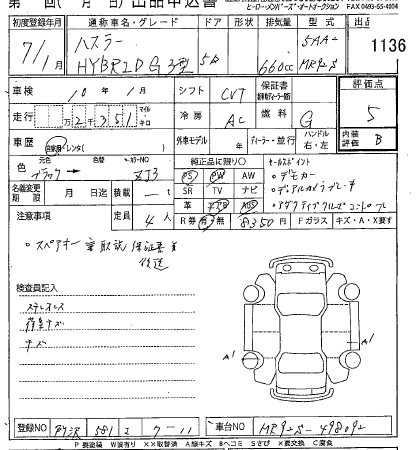 ヒーロー・メンバーズ・オートオークション
FAX 0493-55-4004
初度登録年月 通称車名・グレード ドア 形状 排気量 型式 出品
7/1 ハスラー HYBRID G 3型 5D 660cc 5AA- MR92S 1136
車検 10年 1月 シフト CVT 保証書 評価点 5
走行 2千351 マイル・キロ 冷房 AC 燃料 G
車歴 自家用・レンタ( ) 外車モデル 年 ディーラー・並行 ハンドル 右・左 内装評価 B
色 元色 ブラック→ 色替 カラーNO ZJ3
純正品に限り○ セールスポイント
PS PW AW 。デモカー
名義変更期限 月 日迄 積載 t SR TV ナビ 。デュアルカメラブレーキ
革 エアB ABS 。アダプティブクルーズコントロール
注意事項 定員 4人 R券 有 無 8350円 Fガラス キズ・A・X要す
。スペアキー 車取説 保証書有
後送
検査員記入
ステレオレス
荷台キズ
キズ
A1 A1
登録NO 所沢 581 え 7-11 車台NO MR92S-498092
P 要塗装 W波有り ××取替済 A線キズ Bヘコミ Sさび ×要交換 C腐食